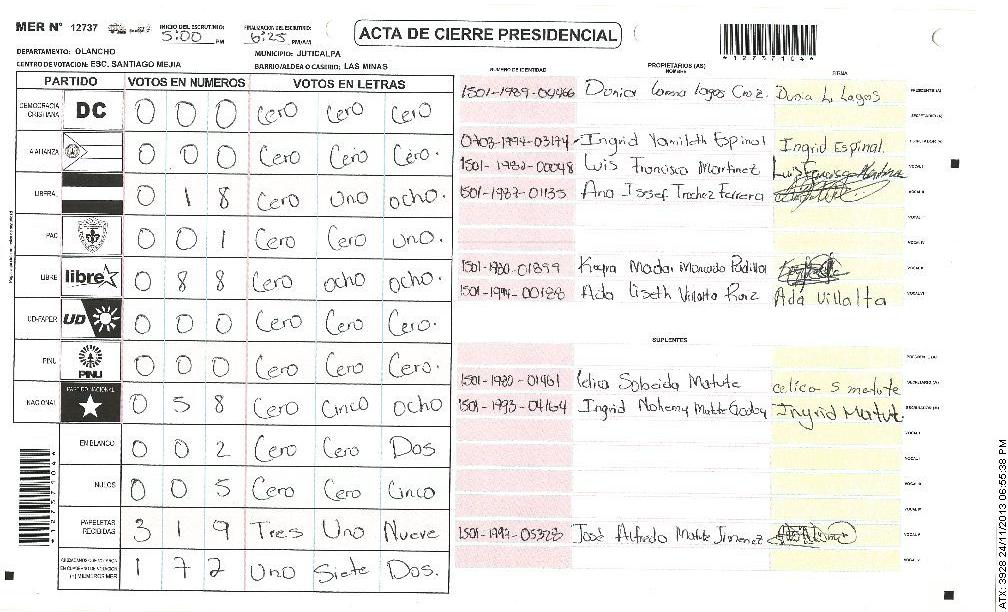 MER N° 12737 INICIO DEL ESCRUTINIO: 5:00 PM FINALIZACION DEL ESCRUTINIO: 6:25 PM/AM
ACTA DE CIERRE PRESIDENCIAL
*12737104*
DEPARTAMENTO: OLANCHO MUNICIPIO: JUTICALPA
CENTRO DE VOTACION: ESC. SANTIAGO MEJIA BARRIO/ALDEA O CASERIO: LAS MINAS
PARTIDO VOTOS EN NUMEROS VOTOS EN LETRAS
DEMOCRACIA CRISTIANA DC 0 0 0 Cero Cero Cero
ALIANZA 0 0 0 Cero Cero Cero.
LIBERAL 0 1 8 Cero uno ocho.
PAC 0 0 1 Cero Cero uno.
LIBRE libre 0 8 8 Cero ocho ocho.
UD-FAPER UD 0 0 0 Cero Cero Cero.
PINU PINU 0 0 0 Cero Cero Cero.
NACIONAL PARTIDO NACIONAL 0 5 8 Cero Cinco ocho
EN BLANCO 0 0 2 Cero Cero Dos
NULOS 0 0 5 Cero Cero Cinco
PAPELETAS RECIBIDAS 3 1 9 Tres Uno Nueve
(+) MIEMBROS MER 1 7 2 Uno Siete Dos.
*12737104*
NUMERO DE IDENTIDAD PROPIETARIOS (AS) NOMBRE FIRMA
1501-1989-04466 Lagos Cruz. Dunia L. Lagos PRESIDENTE (A)
SECRETARIO (A)
Ingrid Yamileth Espinal Ingrid Espinal.
1501-1982-00048 Luis Francisco Martinez VOCAL I
1501-1987-01135 Ana Issef Ferrera VOCAL II
1501-1980-01899
Ada Liseth Villalta Ada Villalta
SUPLENTES
PRESIDENTE (A)
1501-1980-01461 Sobeida Matute SECRETARIO (A)
1501-1993-04164 Ingrid Nohemy Matute Godoy Ingrid Matut.
José Alfredo Matute Jimenez
ATX: 3928 24/11/2013 06:55:38 PM